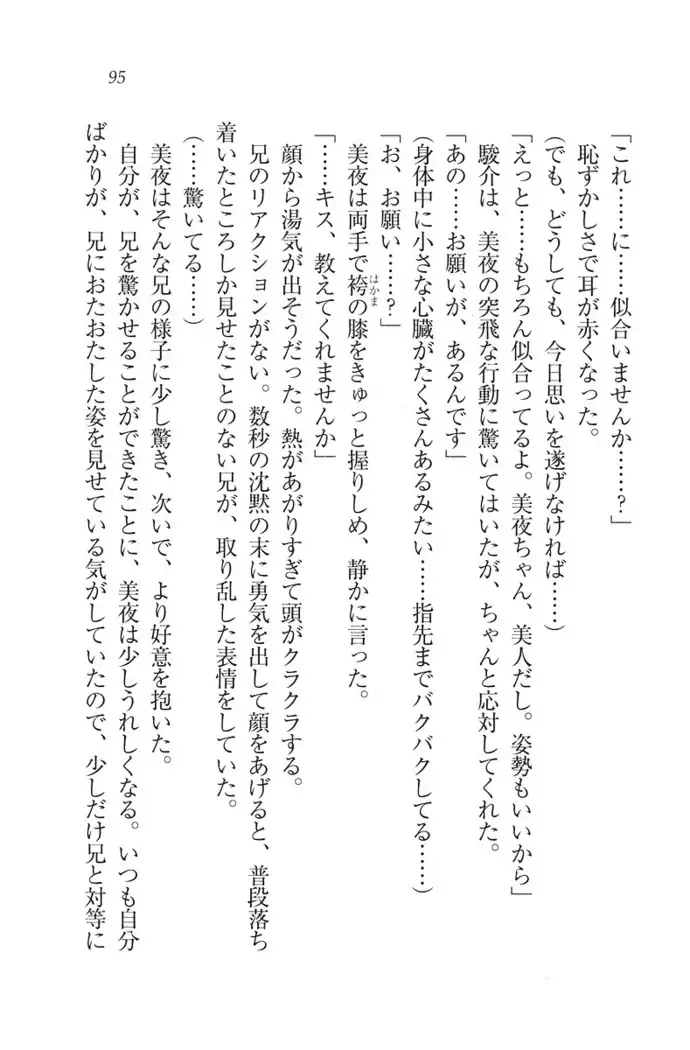 95
「これ……に……似合いませんか……?」
恥ずかしさで耳が赤くなった。
(でも、どうしても、今日思いを遂げなければ……)
「えっと……もちろん似合ってるよ。美夜ちゃん、美人だし。姿勢もいいから」
駿介は、美夜の突飛な行動に驚いてはいたが、ちゃんと応対してくれた。
「あの……お願いが、あるんです」
(身体中に小さな心臓がたくさんあるみたい……指先までバクバクしてる……)
「お、お願い……?」
美夜は両手で袴の膝をきゅっと握りしめ、静かに言った。
はかま
「……キス、教えてくれませんか」
顔から湯気が出そうだった。熱があがりすぎて頭がクラクラする。
兄のリアクションがない。数秒の沈黙の末に勇気を出して顔をあげると、普段落ち
着いたところしか見せたことのない兄が、取り乱した表情をしていた。
(……驚いてる……)
美夜はそんな兄の様子に少し驚き、次いで、より好意を抱いた。
自分が、兄を驚かせることができたことに、美夜は少しうれしくなる。いつも自分
ばかりが、兄におたおたした姿を見せている気がしていたので、少しだけ兄と対等に